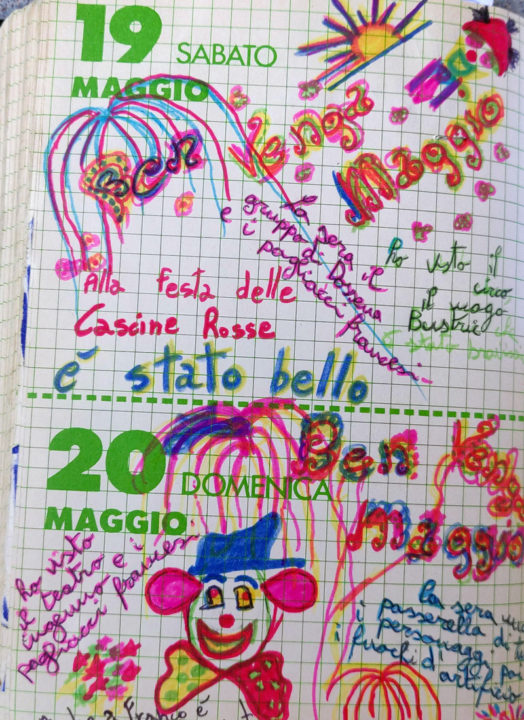 19 SABATO
MAGGIO
Ben
Venga
Maggio
la sera il
gruppo di Dossena
e i pagliacci francesi
ho visto il
circo
il mago
Bustric
è stato
Alla festa delle
Cascine Rosse
è stato bello
20 DOMENICA
MAGGIO
Ben
Venga
Maggio
ho visto
il teatro
e i
pagliacci francesi
la sera
passerella di
i personaggi
i fuochi d'artificio
è